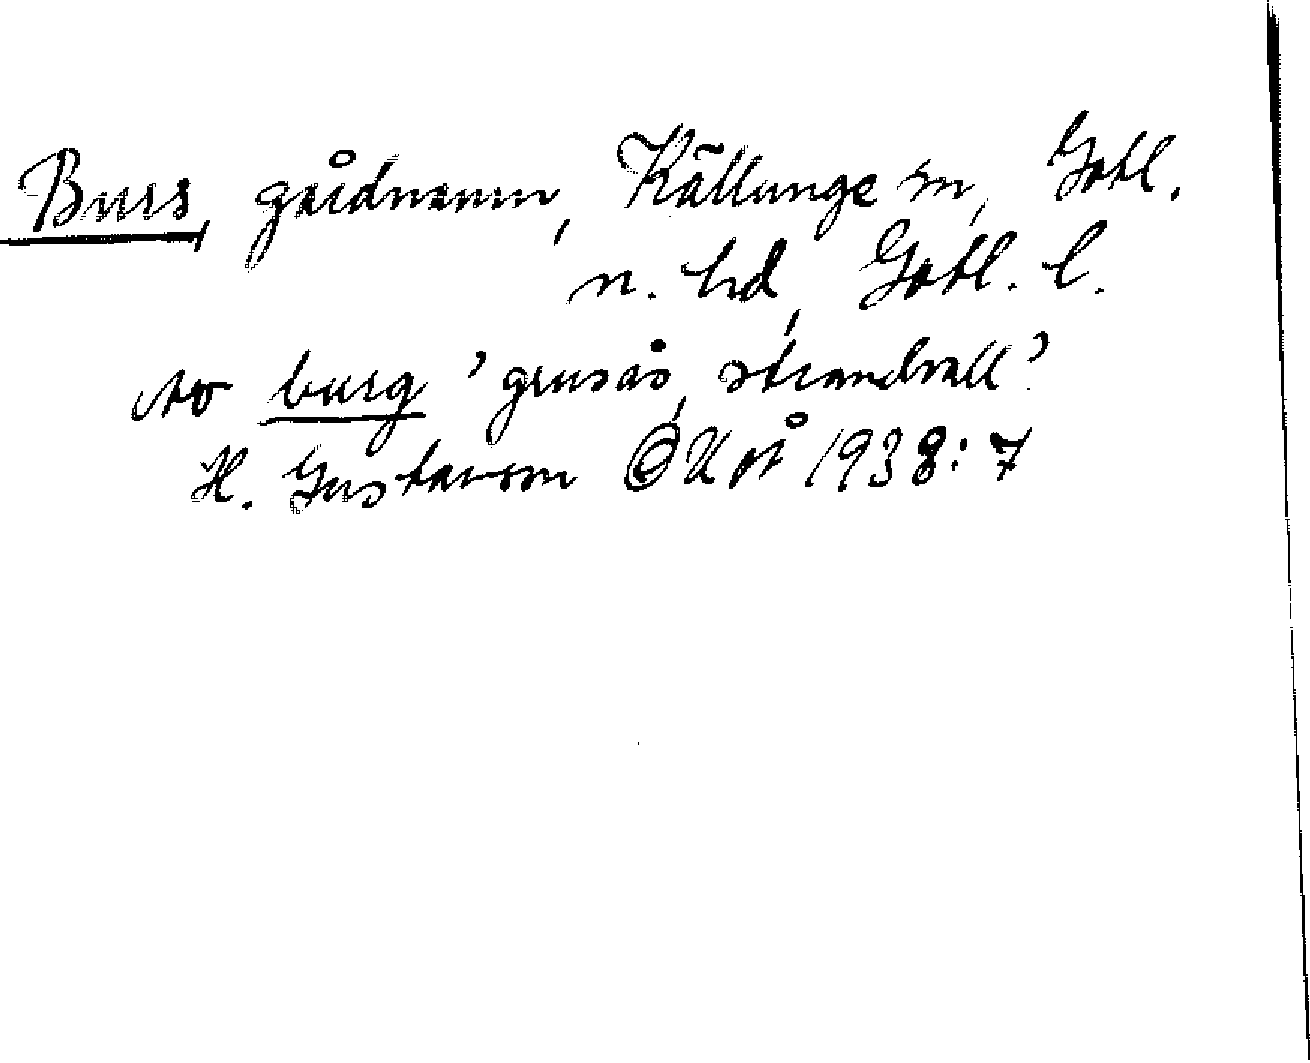 Burs, gårdnamn, Källunge sn, Gotl.
n. hd, Gotl. l.
av burg 'grusås, strandvall'
H. Gustavson OUÅ 1938:7